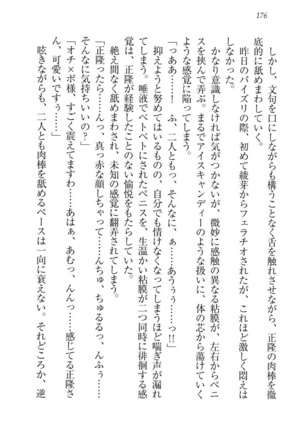 176
しかし、文句を口にしながらも構うことなく舌を触れさせながら、正隆の肉棒を徹
底的に舐めまわしていく。
昨日のパイズリの際、初めて綾芽からフェラチオされたが、これほど激しく悶えは
しなかった。
かなり意識しなければ気がつかないが、微妙に感触の異なる粘膜が、左右からペニ
スを挟んでくる。まるでアイスキャンディーのような扱いに、体の芯から蕩けていく
ような感覚に陥ってしまう。
「っああ……！ ふ、二人とも っ、そんなに、ぁ……あううぅ……っ!!」
抑えようと努めてはいるものの、自分でも情けなくなってしまうほど喘ぎ声が漏れ
てしまう。唾液でベトベトにされたペニスを、生温かい粘膜が二つ同時に徘徊する感
覚は、正隆に今まで感じたことのない愉悦をもたらしていた。
絶え間なく舐めまわされて、未知の感覚に翻弄されてしまう。
「正隆ったら……んっ、真っ赤な顔しちゃって……んちゅ、ちゅるるっ、んふぅ……
そんなに気持ちいいの？」
「オチ×ポ様、すごく震えてます……あはぁ、あむっ、んんっ……感じてる正隆さ
ん、可愛いですぅ……」
呟きながらも、二人とも肉棒を舐めるペースは一向に衰えない。それどころか、逆